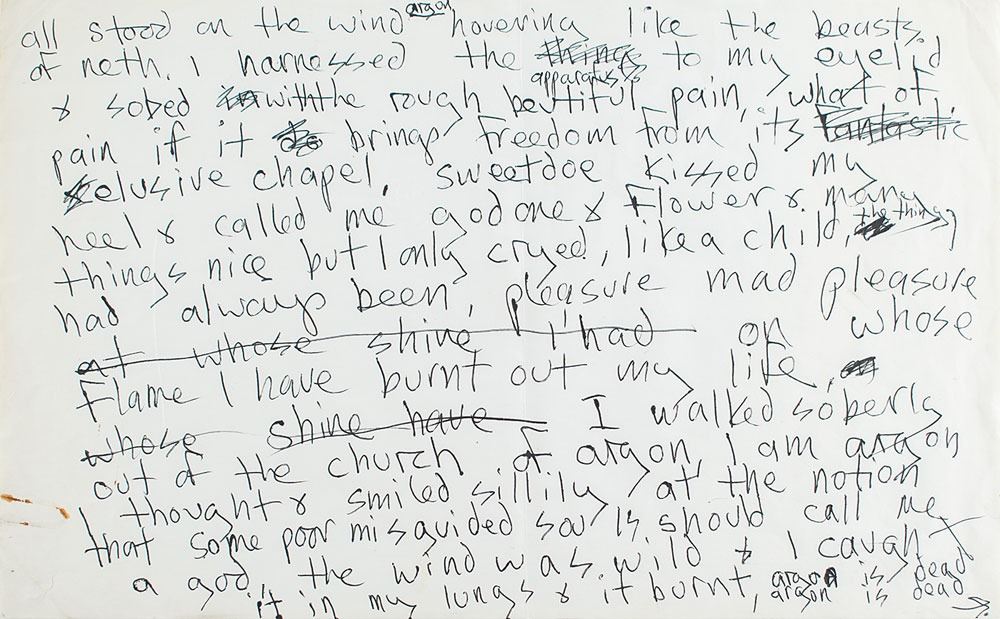 all stood on the wind argon hovering like the beasts.
of neth. I harnessed the things to my eyelid
apparatus
& sobed in withthe rough beutiful pain, what of
pain if it brings freedom from its fantastic
elusive chapel, sweetdoe kissed my
heel & called me godone & flower & many
the things
things nice but I only cryed, like a child,
had always been, pleasure mad pleasure
at whose shine I had on whose
Flame I have burnt out my life,
whose shine have I walked soberly
out of the church of argon, I am argon
I thought & smiled sillily at the notion
that some poor misguided souls should call me
a god, the wind was wild & I caught
it in my lungs & it burnt, argon is dead
argon is dead